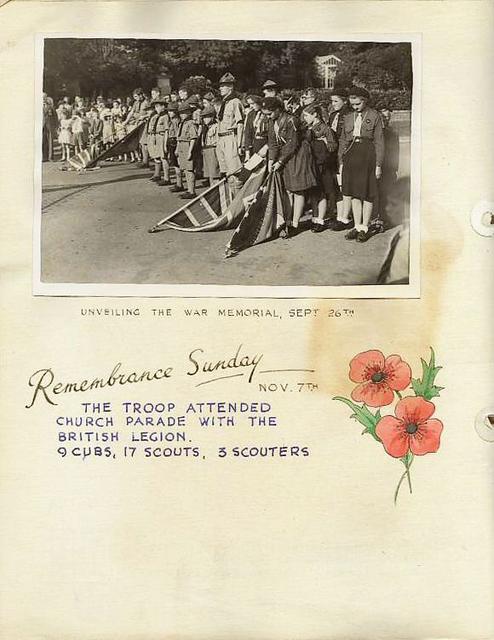 UNVEILING THE WAR MEMORIAL, SEPT 26TH
Remembrance Sunday
NOV. 7TH
THE TROOP ATTENDED
CHURCH PARADE WITH THE
BRITISH LEGION.
9 CUBS, 17 SCOUTS, 3 SCOUTERS